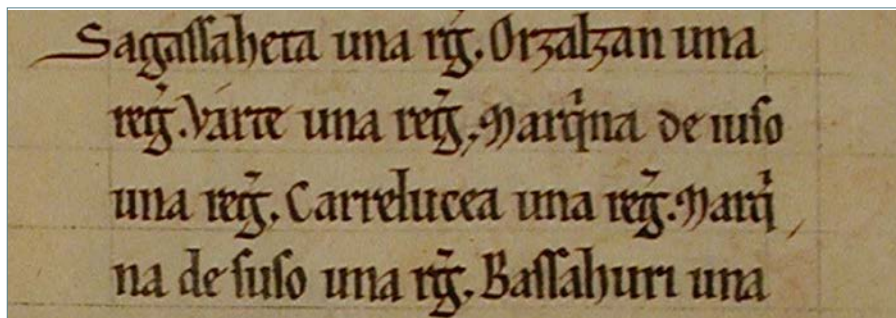 Sagassaheta una rg̃. Orzalzan una
reg̃. Vârte una reg̃, Marq̃na de iuso
una reg̃. Carrelucea una reg̃. Marq̃
na de suso una rg̃. Bassahuri una